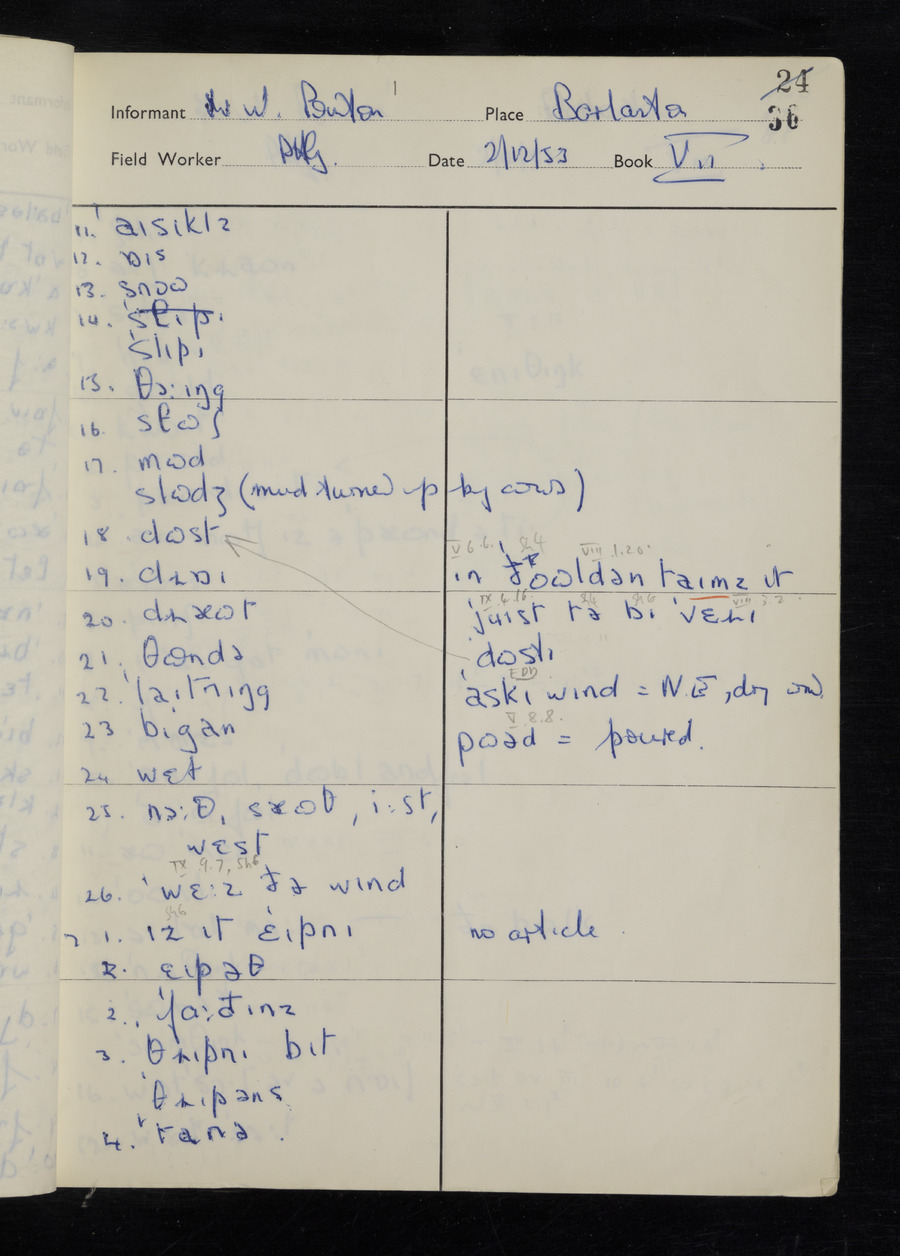 24
36
Informant Mr W. Burton Place Barlaston
Field Worker Date 2/12/53 Book VII
11. aɪsɪklz
12. ɒɪs
13. snɔʊ
14. slɪpɪ
ˈslɪpɪ
15. θɔːɪŋg
16. stɔʊʃ
17. mʊd
slʊdʒ (mud turned up by cows)
18. dʊst
19. dɹɒɪ
20. dɹæʊt
21. θʊndə
22. laɪtnɪŋg
23 bɪgan
24 wɛt
25. nɔːθ, sæʊθ, iːst,
wɛst
IX 9.7, Sh6
26. ˈwɛːz ðə wɪnd
Sh6
7 1. ɪz ɪt ɛɪpnɪ
2. ɛɪpəθ
2. ˈfaːðɪnz
3. θɹɪpnɪ bɪt
ˈθɹɪpəns
4. tanə
V 6.6. Sh4 VIII 1.20.
ɪn ðʊʊldən taɪmz ɪt
IX 4.16. Sh4 Sh6 VIII 3.2
juɪst tə bɪ ˈvɛɹɪ
ˈdʊstɪ
EDD
ˈaskɪ wɪnd = N.E, dry
V 8.8.
pʊəd = poured.
no article